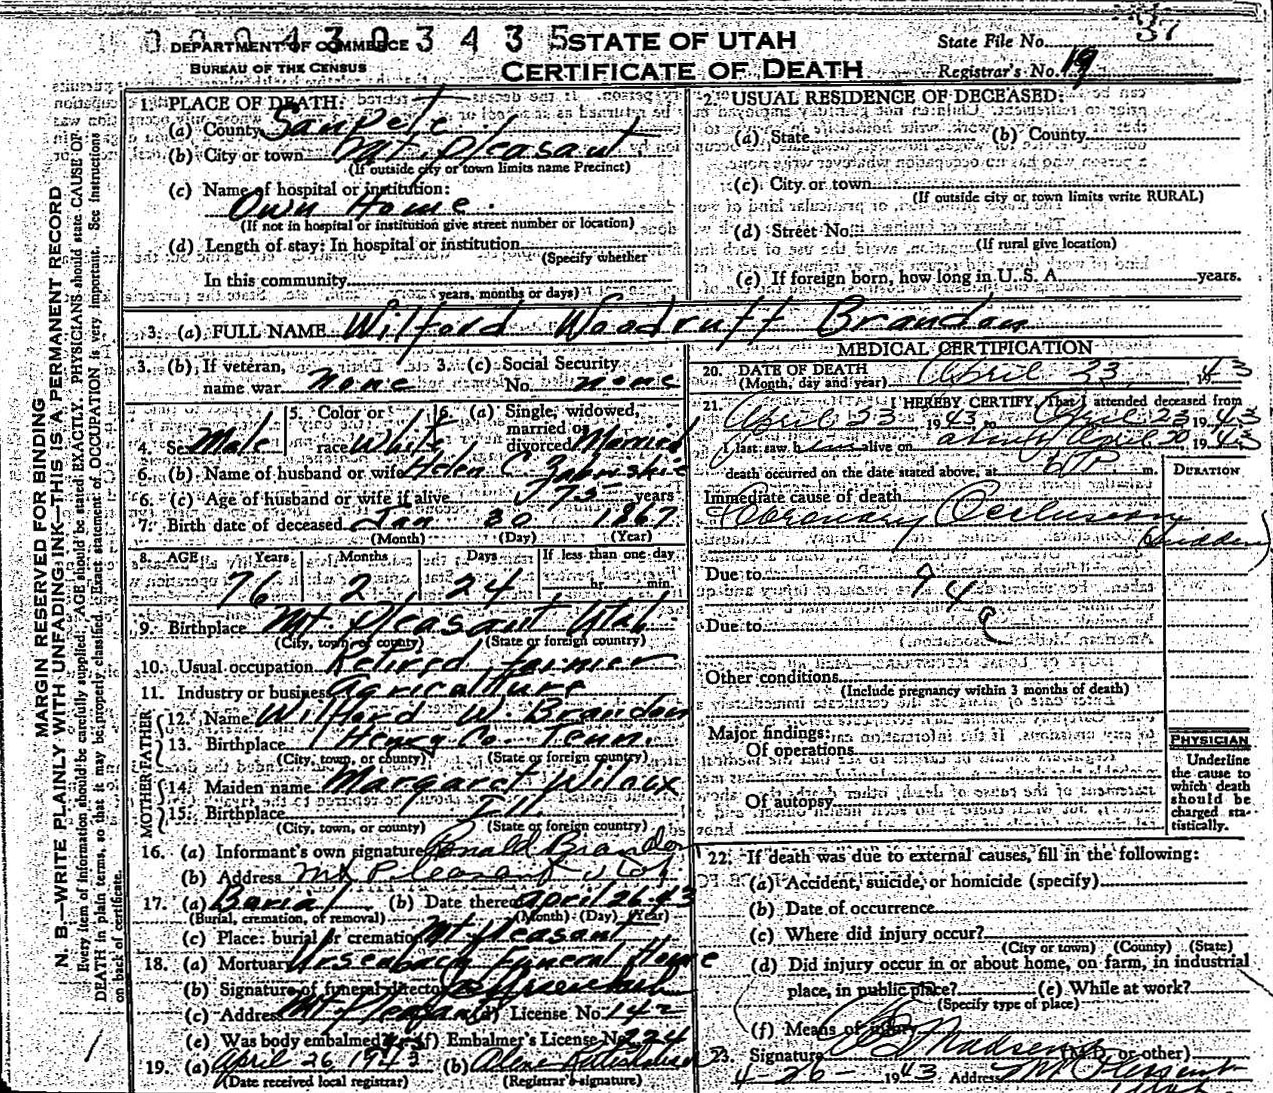 0 0 0 4 3 0 3 4 3 5
DEPARTMENT OF COMMERCE
BUREAU OF THE CENSUS
STATE OF UTAH
CERTIFICATE OF DEATH
State File No. 37
Registrar's No. 19
MARGIN RESERVED FOR BINDING
N. B.—WRITE PLAINLY WITH UNFADING INK—THIS IS A PERMANENT RECORD
Every item of information should be carefully supplied. AGE should be stated EXACTLY. PHYSICIANS should state CAUSE OF
DEATH in plain terms, so that it may be properly classified. Exact statement of OCCUPATION is very important. See instructions
on back of certificate.
1. PLACE OF DEATH:
(a) County Sanpete
(b) City or town Mt. Pleasant
(If outside city or town limits name Precinct)
(c) Name of hospital or institution:
Own Home.
(If not in hospital or institution give street number or location)
(d) Length of stay: In hospital or institution
(Specify whether
In this community
years, months or days)
2. USUAL RESIDENCE OF DECEASED:
(a) State (b) County
(c) City or town
(If outside city or town limits write RURAL)
(d) Street No.
(If rural give location)
(e) If foreign born, how long in U. S. A. years.
3. (a) FULL NAME Wilford Woodruff Brandon
3. (b) If veteran, name war none
3. (c) Social Security No. none
4. Sex Male
5. Color or race White
6. (a) Single, widowed, married or divorced Married
6. (b) Name of husband or wife Helen C.
6. (c) Age of husband or wife if alive 75 years
7. Birth date of deceased Jan 30 1867
(Month) (Day) (Year)
8. AGE Years Months Days If less than one day
76 2 24 hr. min.
9. Birthplace Mt Pleasant Utah
(City, town, or county) (State or foreign country)
10. Usual occupation Retired farmer
11. Industry or business Agriculture
FATHER
12. Name Wilford W. Brandon
13. Birthplace Henry Co. Tenn.
(City, town, or county) (State or foreign country)
MOTHER
14. Maiden name Margaret Wilcox
15. Birthplace Ill.
(City, town, or county) (State or foreign country)
16. (a) Informant's own signature Ronald Brandon
(b) Address Mt Pleasant Utah
17. (a) Burial (b) Date thereof April 26-43
(Burial, cremation, or removal) (Month) (Day) (Year)
(c) Place: burial or cremation Mt Pleasant
18. (a) Mortuary Ursenbach Funeral Home
(b) Signature of funeral director Ursenbach
(c) Address Mt Pleasant (d) License No. 142
(e) Was body embalmed yes (f) Embalmer's License No. 224
19. (a) April 26 1943 (b) Alene
(Date received local registrar) (Registrar's signature)
MEDICAL CERTIFICATION
20. DATE OF DEATH
(Month, day and year) April 23, 1943
21. I HEREBY CERTIFY, That I attended deceased from
April 23 1943 to April 23 1943
I last saw h alive on about April 20 1943
death occurred on the date stated above, at 6 P m.
DURATION
Immediate cause of death
Coronary Occlusion
Sudden
Due to 94
Due to
Other conditions
(Include pregnancy within 3 months of death)
Major findings:
Of operations
Of autopsy
PHYSICIAN
Underline
the cause to
which death
should be
charged sta-
tistically.
22. If death was due to external causes, fill in the following:
(a) Accident, suicide, or homicide (specify)
(b) Date of occurrence
(c) Where did injury occur?
(City or town) (County) (State)
(d) Did injury occur in or about home, on farm, in industrial
place, in public place? (e) While at work?
(Specify type of place)
(f) Means of injury
23. Signature Madsen (M.D. or other)
4-26-1943 Address Mt Pleasant